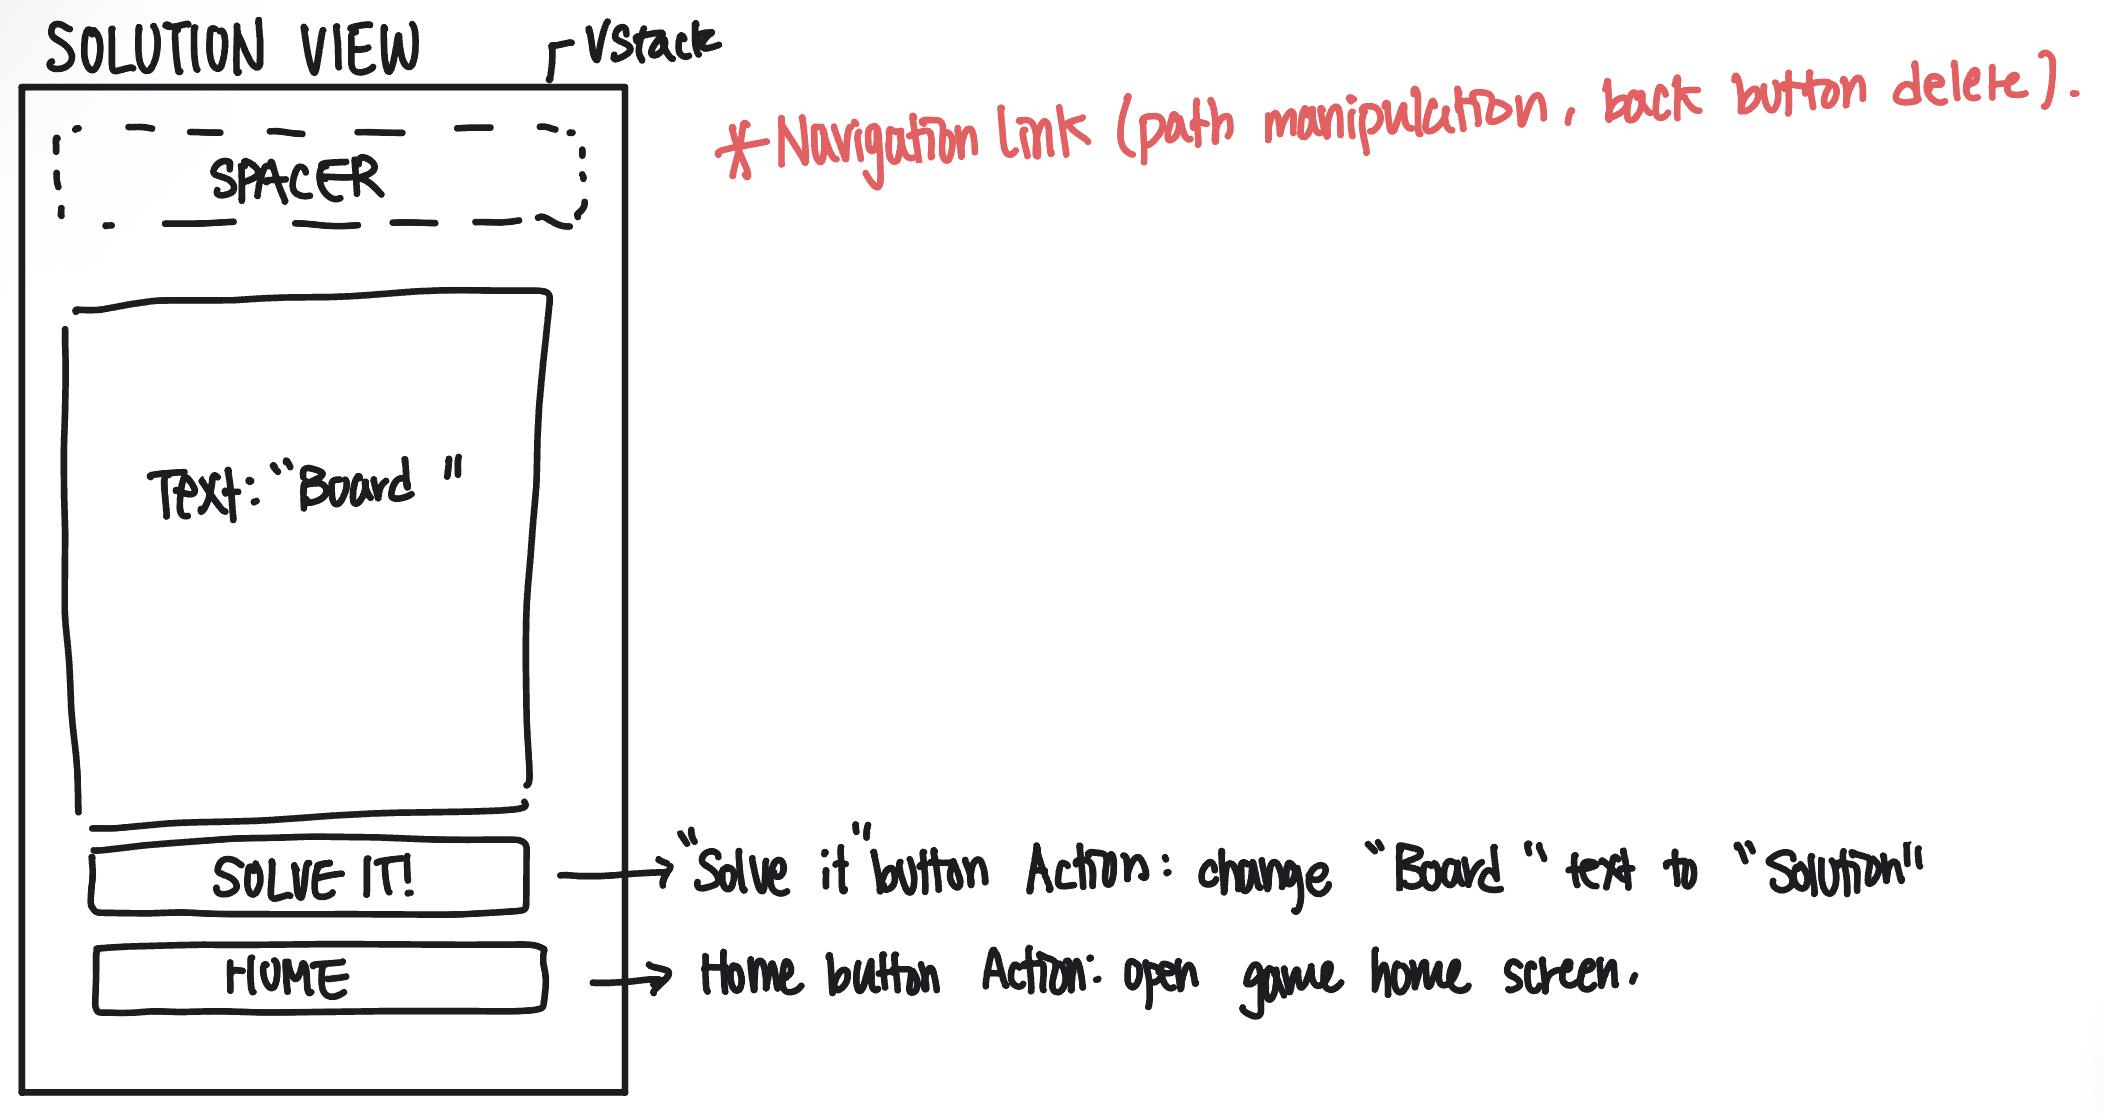 SOLUTION VIEW
VStack
*Navigation link (path manipulation, back button delete).
SPACER
Text: "Board"
SOLVE IT!
"Solve it" button Action: change "Board" text to "Solution"
HOME
Home button Action: open game home screen.